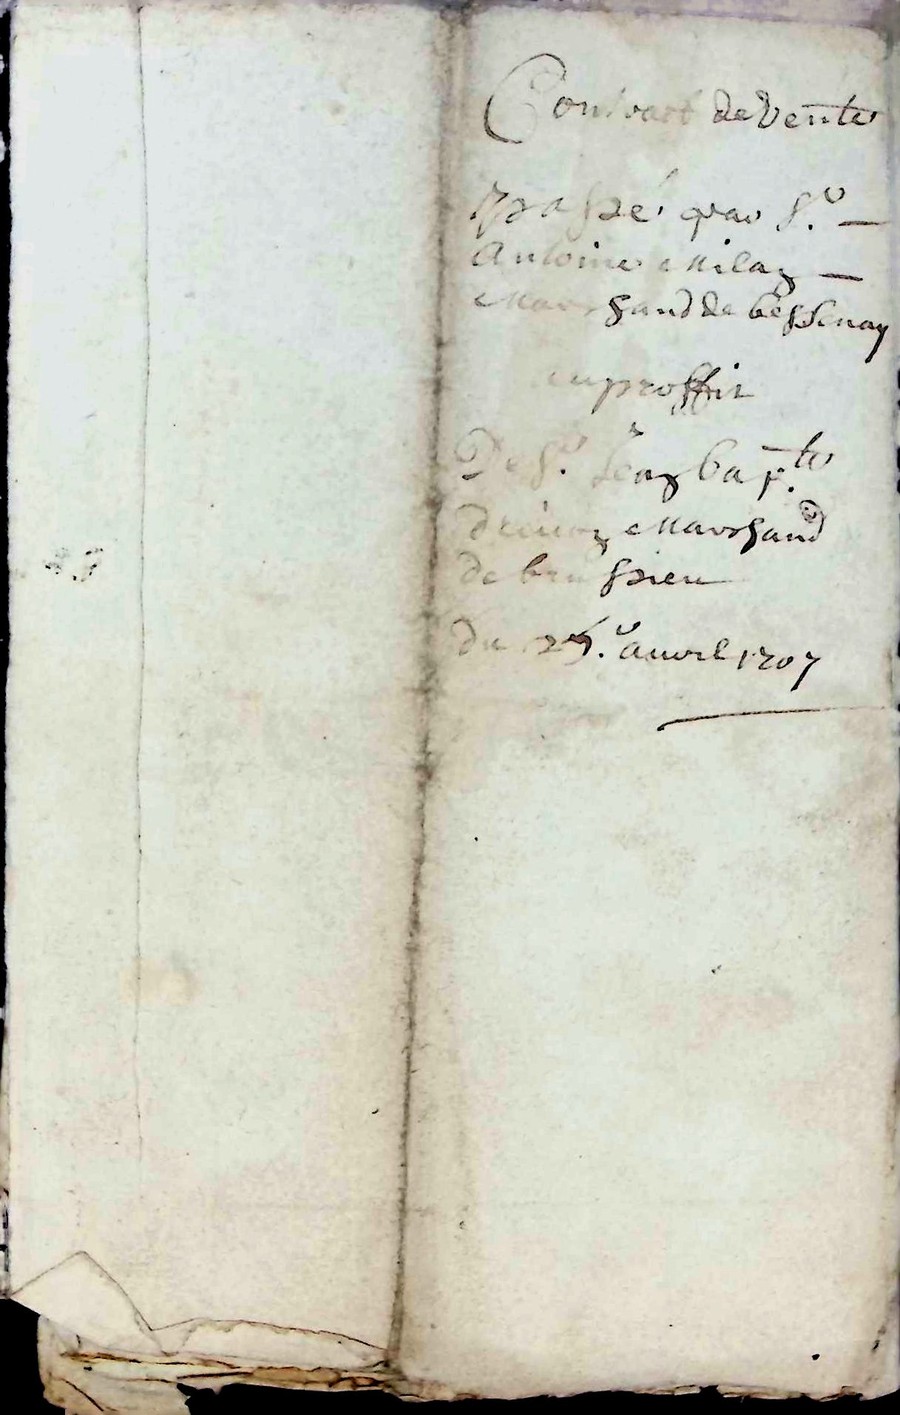 Contract de Vente
passé par Sr.
Antoine Milaz
Marchand de bessenay
au proffit
De Sr. Jean bapte.
Marchand
de brussieu
du avril 1707